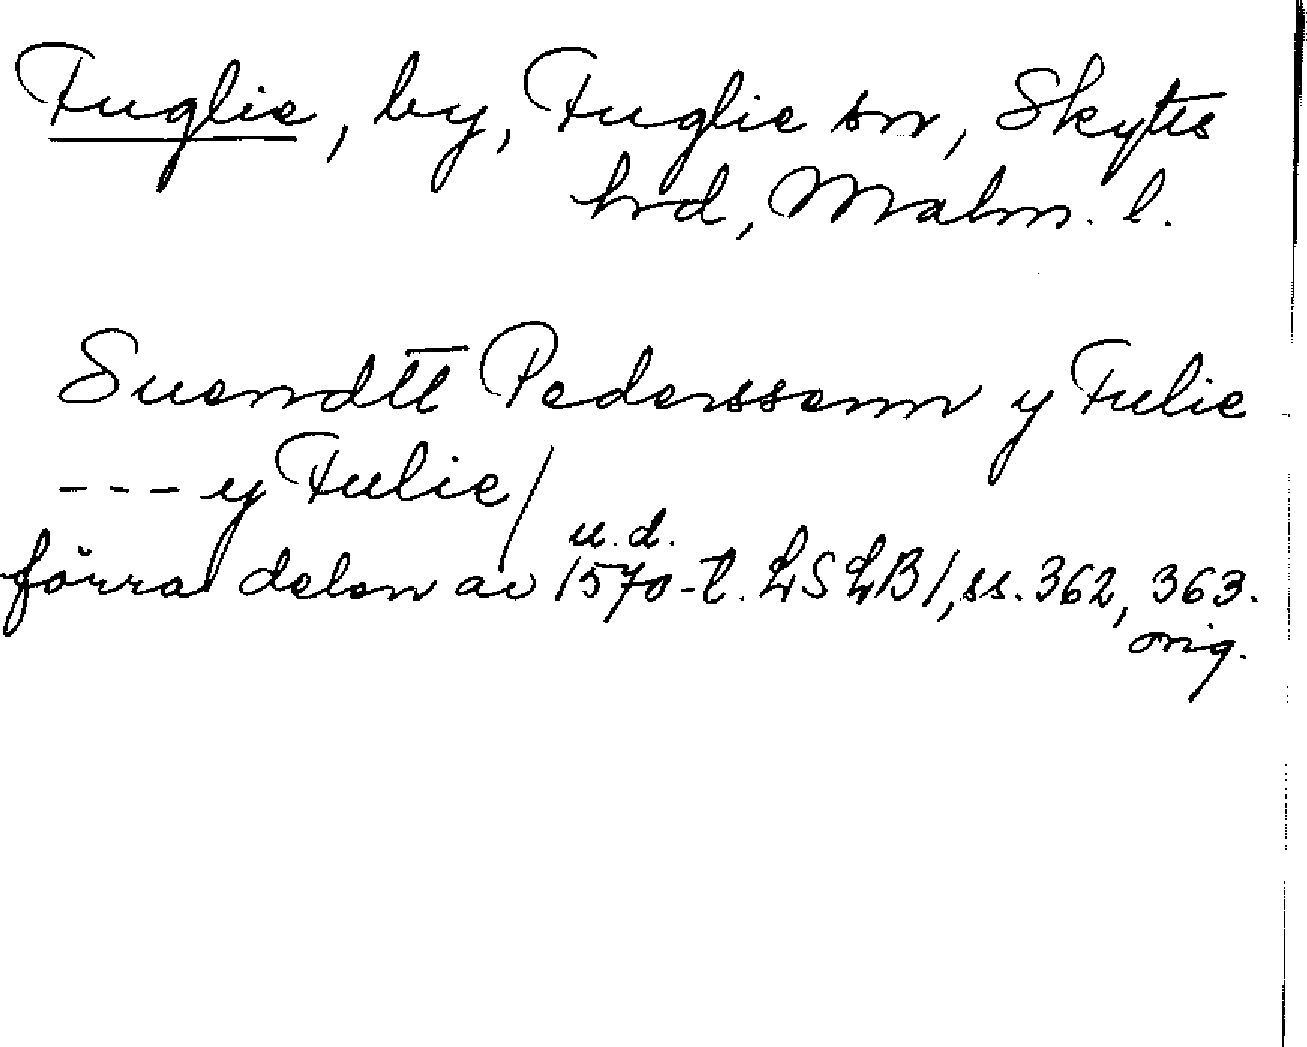 Fuglie, by, Fuglie sn, Skytts
hrd, Malm. l.
Suendtt Pederssenn y Fulie
--- y Fulie/
u.d.
förra delen av 1570-t. LSLB1, ss. 362, 363.
orig.